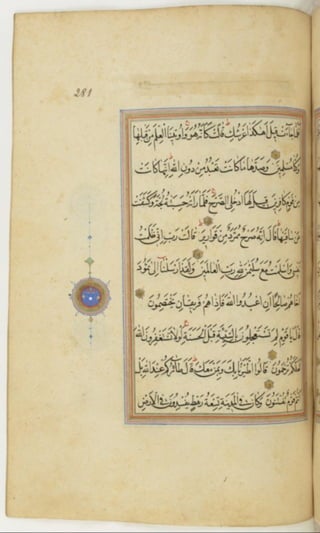 281
فَلَمَّا جَاءَتْ قِيلَ أَهَكَذَا عَرْشُكِ قَالَتْ كَأَنَّهُ هُوَ وَأُوتِينَا الْعِلْمَ مِنْ قَبْلِهَا
وَكُنَّا مُسْلِمِينَ وَصَدَّهَا مَا كَانَتْ تَعْبُدُ مِنْ دُونِ اللهِ إِنَّهَا كَانَتْ
مِنْ قَوْمٍ كَافِرِينَ قِيلَ لَهَا ادْخُلِي الصَّرْحَ فَلَمَّا رَأَتْهُ حَسِبَتْهُ لُجَّةً وَكَشَفَتْ
عَنْ سَاقَيْهَا قَالَ إِنَّهُ صَرْحٌ مُمَرَّدٌ مِنْ قَوَارِيرَ قَالَتْ رَبِّ إِنِّي ظَلَمْتُ
نَفْسِي وَأَسْلَمْتُ مَعَ سُلَيْمٰنَ لِلهِ رَبِّ الْعَالَمِينَ وَلَقَدْ أَرْسَلْنَا إِلَى ثَمُودَ
أَخَاهُمْ صَالِحًا أَنِ اعْبُدُوا اللهَ فَإِذَا هُمْ فَرِيقَانِ يَخْتَصِمُونَ
قَالَ يَا قَوْمِ لِمَ تَسْتَعْجِلُونَ بِالسَّيِّئَةِ قَبْلَ الْحَسَنَةِ لَوْلَا تَسْتَغْفِرُونَ اللهَ
لَعَلَّكُمْ تُرْحَمُونَ قَالُوا اطَّيَّرْنَا بِكَ وَبِمَنْ مَعَكَ قَالَ طَائِرُكُمْ عِنْدَ اللهِ بَلْ
أَنْتُمْ قَوْمٌ تُفْتَنُونَ وَكَانَ فِي الْمَدِينَةِ تِسْعَةُ رَهْطٍ يُفْسِدُونَ فِي الْأَرْضِ